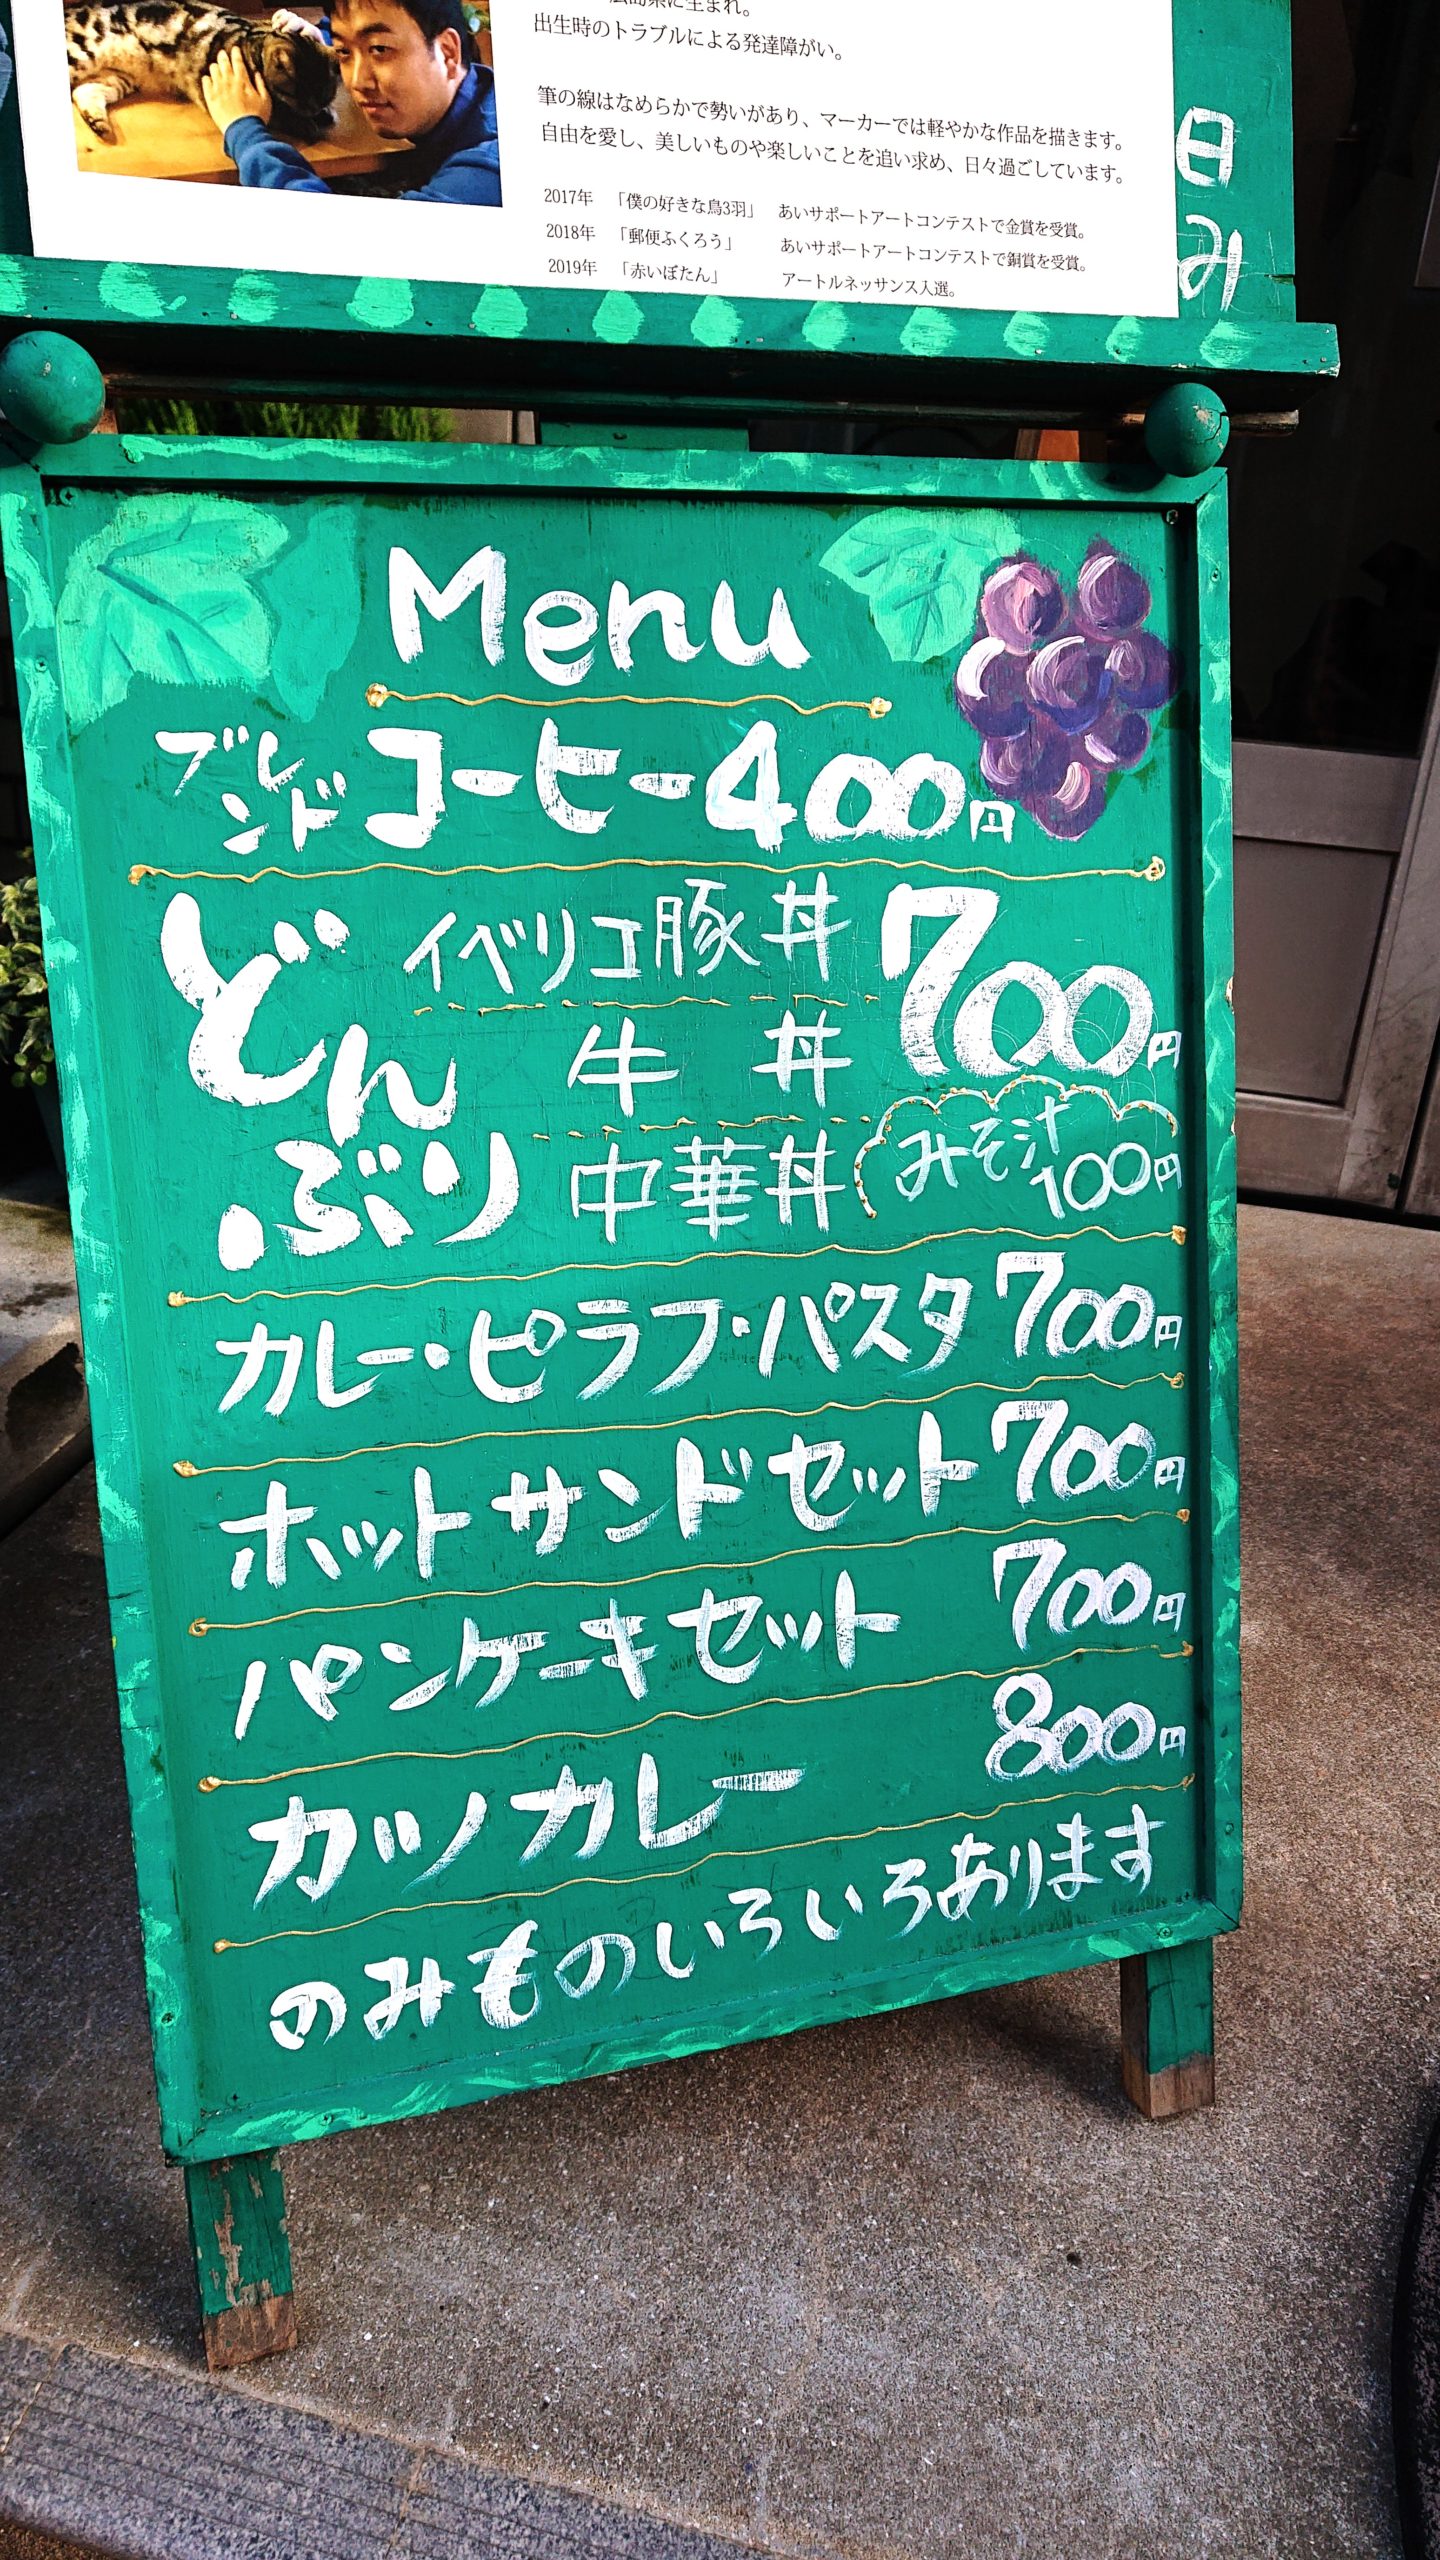 広島県に生まれ。
出生時のトラブルによる発達障がい。
筆の線はなめらかで勢いがあり、マーカーでは軽やかな作品を描きます。
自由を愛し、美しいものや楽しいことを追い求め、日々過ごしています。
2017年 「僕の好きな鳥3羽」 あいサポートアートコンテストで金賞を受賞。
2018年 「郵便ふくろう」 あいサポートアートコンテストで銅賞を受賞。
2019年 「赤いぼたん」 アートルネッサンス入選。
日
み
Menu
ブレンドコーヒー400円
どんぶり
イベリコ豚丼 700円
牛丼
中華丼
みそ汁
100円
カレー・ピラフ・パスタ 700円
ホットサンドセット 700円
パンケーキセット 700円
カツカレー 800円
のみものいろいろあります